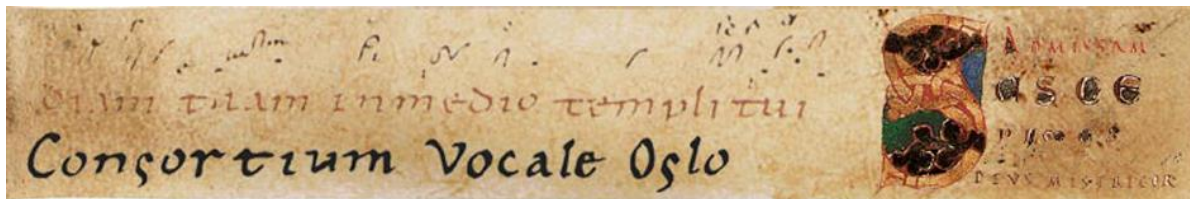 diam tuam in medio templi tui
Consortium Vocale Oslo
AD MISSAM
SUSCE
PIMUS
DEUS MISERICOR